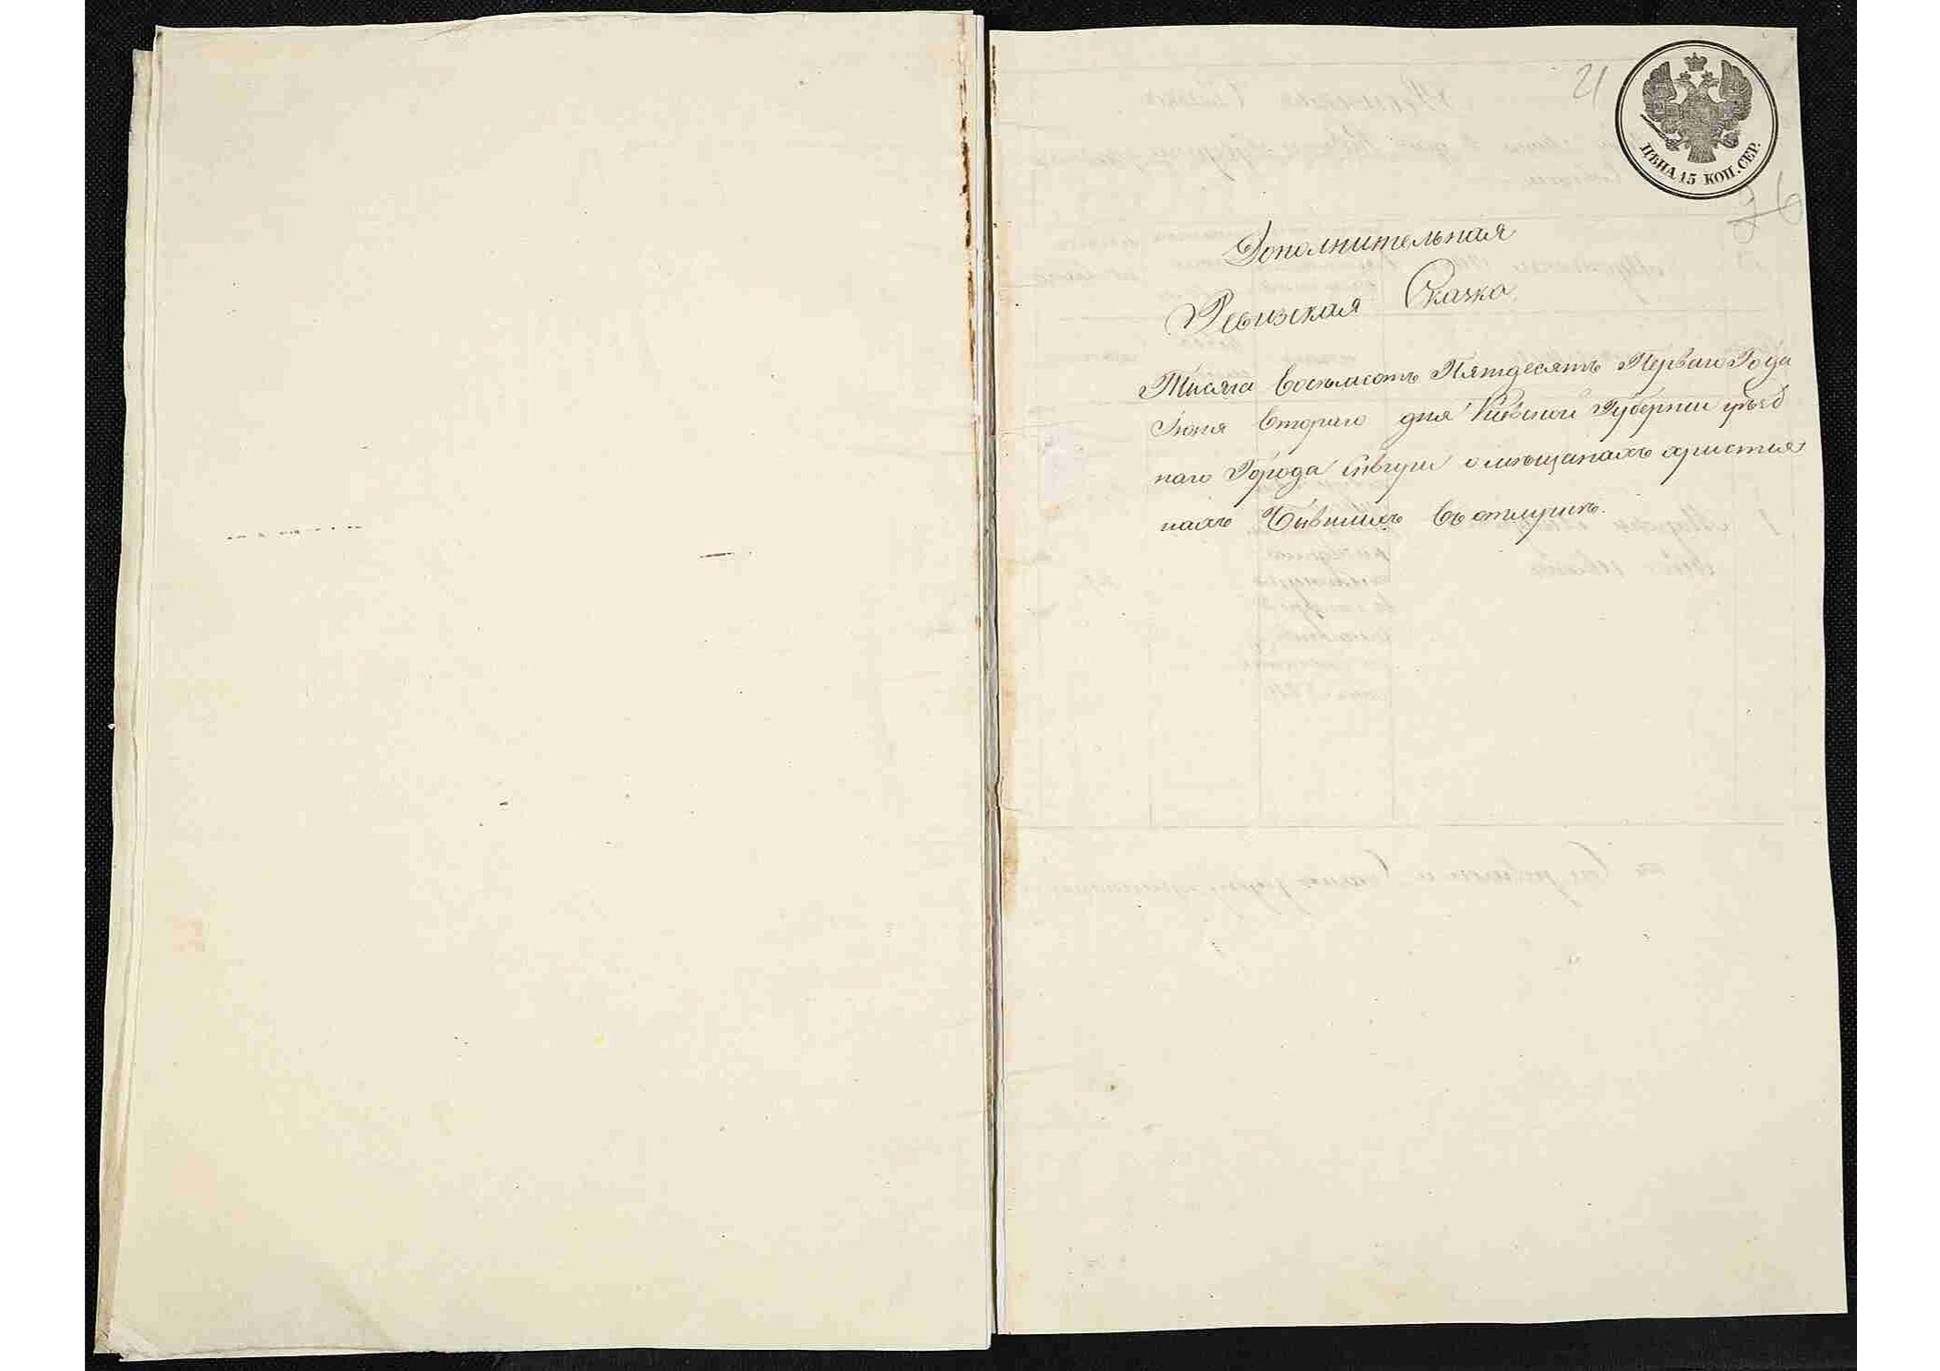 21
ЦѢНА 15 КОП. СЕР.
76
Дополнительная
Ревизская Сказка
Тысяча восемьсотъ Пятдесятъ Перваго Года
Іюня втораго дня Кіевской Губерніи уѣзд
наго Города Сквиры о мѣщанахъ христия
нахъ бывшихъ въ отлучке.